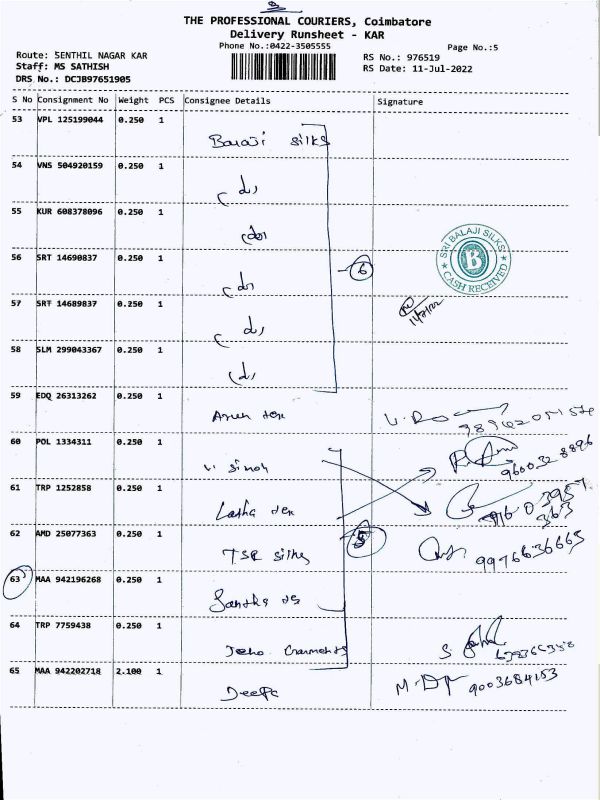 THE PROFESSIONAL COURIERS, Coimbatore
Delivery Runsheet - KAR
Phone No.:0422-3505555
Page No.:5
Route: SENTHIL NAGAR KAR
Staff: MS SATHISH
DRS No.: DCJB97651905
RS No.: 976519
RS Date: 11-Jul-2022
S No Consignment No Weight PCS Consignee Details Signature
53 VPL 125199044 0.250 1
Balaji silks
54 VNS 504920159 0.250 1
55 KUR 608378096 0.250 1
56 SRT 14690837 0.250 1
6
SRI BALAJI SILKS
B
CASH RECEIVED
57 SRT 14689837 0.250 1
11/7/22
58 SLM 299043367 0.250 1
59 EDQ 26313262 0.250 1
Arun tex
60 POL 1334311 0.250 1
V. Singh
61 TRP 1252858 0.250 1
62 AMD 25077363 0.250 1
5
TSR silks
9976636665
63 MAA 942196268 0.250 1
64 TRP 7759438 0.250 1
Garments
65 MAA 942202718 2.100 1
Deepa
9003684153